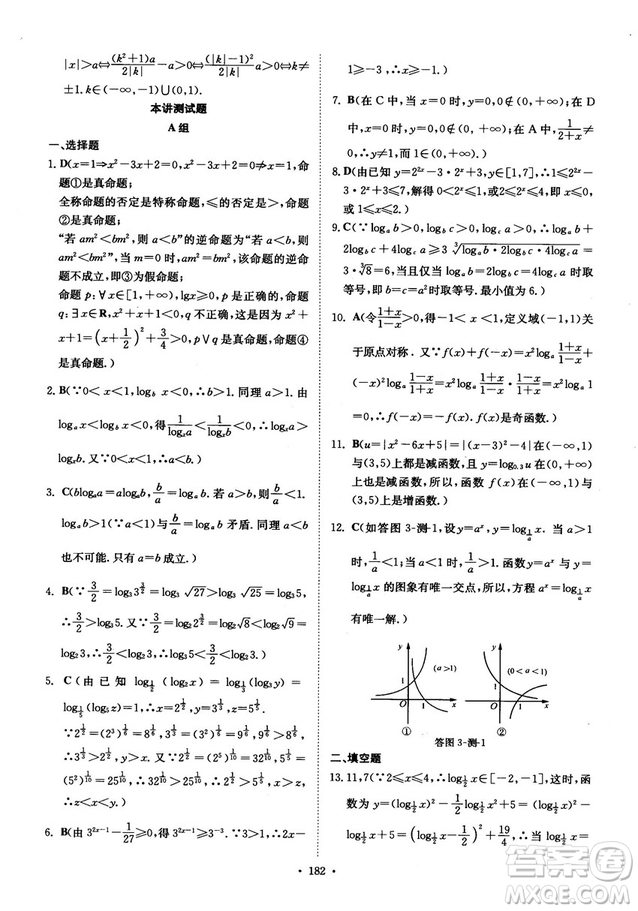 |x|>a⇔(k²+1)a/2|k|>a⇔(k²+1)/2|k|>1⇔k≠
±1. k∈(-∞,-1)∪(1,∞).
本讲测试题
A 组
一、选择题
1. D(x=1⇒x²-3x+2=0,x²-3x+2=0⇏x=1.故
命题①是真命题;
全称命题的否定是特称命题,≤的否定是>,命题
②是真命题;
“若 am²<bm²,则 a<b”的逆命题为“若 a<b,则
am²<bm²”.当 m=0 时,am²=bm²=0,该命题的逆
命题不成立,即③为假命题;
命题 p:∀x∈[1,+∞),lgx≥0 是正确的,命题
q:∃x∈R,x²+x+1<0 是错误的,因为 x²+
x+1=(x+1/2)²+3/4>0,p∨q 是真命题,命题④
是真命题.)
2. B(∵0<x<1,log_b x>0,∴b<1.同理 a<1.由
log_a x<log_b x<0,得 1/log_x a<1/log_x b<0,∴log_x a>
log_x b.又∵0<x<1,∴a<b.)
3. C(blog_a a=alog_a b,b/a=log_a b.若 a>b,则 b/a<1.
log_a b>1,与 b/a=log_a b 矛盾.同理,若 a<b
也不可能.只有 a=b 成立.)
4. B(∵3/2=log₃3^(3/2)=log₃√27>log₃√25=log₃5,
∴3/2>log₃5.又∵3/2=log₂2^(3/2)=log₂√8<log₂√9,
∴3/2<log₂3.)
5. C(由已知 log_(1/2)(log₂x)=log_(1/3)(log₃y)=
log_(1/5)(log₅z)=1,∴x=2^(1/2),y=3^(1/3),z=5^(1/5).
∵2^(1/2)=(2³)^(1/6)=8^(1/6),3^(1/3)=(3²)^(1/6)=9^(1/6),8^(1/6)<9^(1/6),
∴3^(1/3)>2^(1/2),∴y>x.∵2^(1/2)=(2⁵)^(1/10)=32^(1/10),5^(1/5)=
(5²)^(1/10)=25^(1/10),32^(1/10)>25^(1/10),∴2^(1/2)>5^(1/5),x>z,
∴z<x<y.)
6. B(由 3^(2x-1)-1/27≥0,得 3^(2x-1)≥3⁻³.∵3>1,∴2x-
1≥-3,∴x≥-1.)
7. B(在 C 中,当 x=3 时,y=0,0∉(0,+∞);在 D
中,当 x=0 时,y=0,0∉(0,+∞);在 A 中,1/(2+x)≠
0,∴y≠1.)
8. D(由已知 y=2^(2x)-3·2^x+3,y∈[1,7],∴1≤2^(2x)-
3·2^x+3≤7,解得 0<2^x≤1 或 2≤2^x≤4,∴x≤0
或 1≤x≤2.)
9. C(∵log_a b>0,log_b c>0,log_c a>0,∴log_a b+
2log_b c+4log_c a≥3∛(log_a b·2log_b c·4log_c a)=
3·∛8=6,当且仅当 log_a b=2log_b c=4log_c a 时取
等号,即当 b=c=a² 时取等号.其最小值为 6.)
10. A(令(1+x)/(1-x)>0,得-1<x<1,定义域(-1,1)关
于原点对称.又∵log_a (1-x)/(1+x)+log_a (1+x)/(1-x)=
log_a((1-x)/(1+x)·(1+x)/(1-x))=log_a 1=0,即 f(-x)+f(x)
=0,∴f(-x)=-f(x),∴f(x)是奇函数.)
11. B(u=|x²-6x+5|=|(x-3)²-4|,在(-∞,1)
与(3,5)上都是减函数,y=log₀.₃u 在(0,+∞)上
也是减函数,∴f(x)=log₀.₃|x²-6x+5|在(-∞,1)和
(3,5)上是增函数.)
12. C(如答图 3-测-1,设 y=a^x,y=log_(1/a)x.当 a>1
时,1/a<1;当 0<a<1 时,1/a>1.函数 y=a^x 与 y=
log_(1/a)x 的图象有唯一交点,∴方程 a^x=log_(1/a)x
有唯一解.)
y y
(a>1) (0<a<1)
1 1
O 1 x O 1 x
① ②
答图 3-测-1
二、填空题
13. 11,7(∵2≤x≤4,∴log_(1/2)x∈[-2,-1],函数
f(x)=log_(1/2)²x-log_(1/2)x²+5=log_(1/2)²x-log_(1/2)x+5
∴log_(1/2)²x-log_(1/2)x+5=(log_(1/2)x-1/2)²+19/4,当
· 182 ·
答案圈